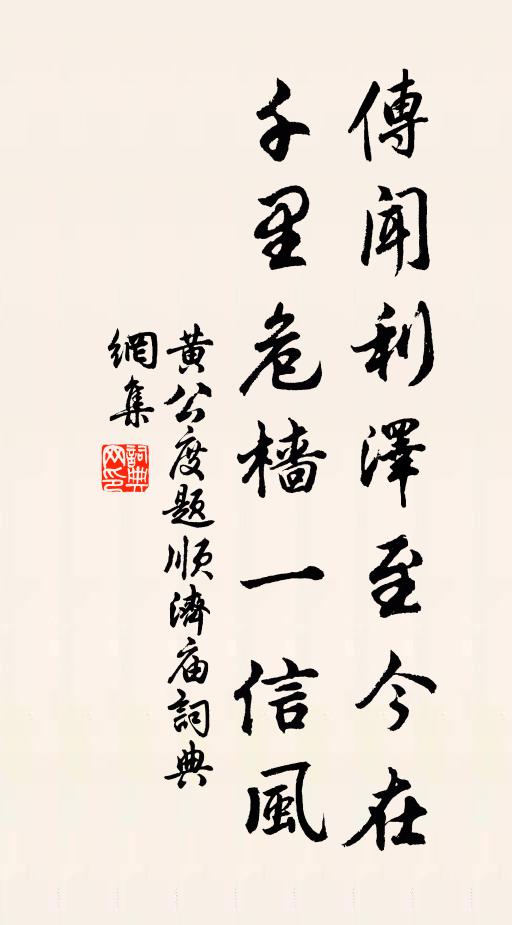 傳聞利澤至今在
千里危檣一信風
黃公度题順濟庙詞典
網集
詞典
网印